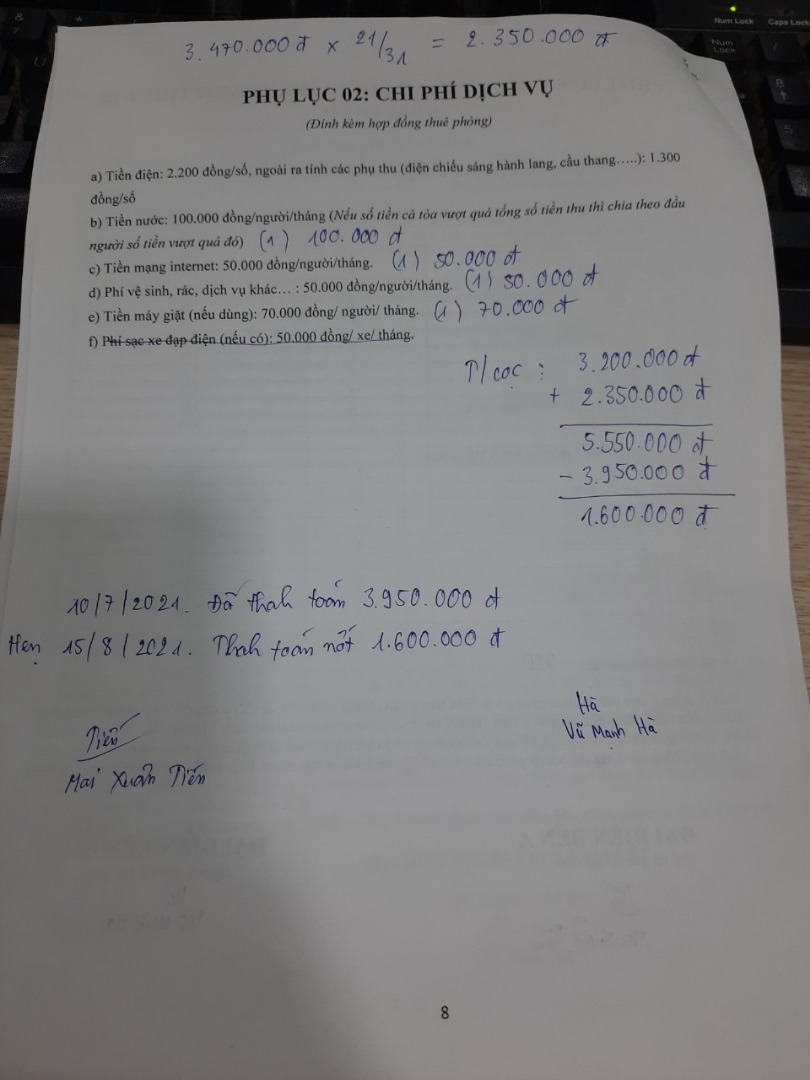 3.470.000đ x 21/31 = 2.350.000 đ
PHỤ LỤC 02: CHI PHÍ DỊCH VỤ
(Đính kèm hợp đồng thuê phòng)
a) Tiền điện: 2.200 đồng/số, ngoài ra tính các phụ thu (điện chiếu sáng hành lang, cầu thang…..): 1.300
đồng/số
b) Tiền nước: 100.000 đồng/người/tháng (Nếu số tiền cả tòa vượt quá tổng số tiền thu thì chia theo đầu
người số tiền vượt quá đó) (1) 100.000 đ
c) Tiền mạng internet: 50.000 đồng/người/tháng. (1) 50.000 đ
d) Phí vệ sinh, rác, dịch vụ khác… : 50.000 đồng/người/tháng. (1) 50.000 đ
e) Tiền máy giặt (nếu dùng): 70.000 đồng/ người/ tháng. (1) 70.000 đ
f) Phí sạc xe đạp điện (nếu có): 50.000 đồng/ xe/ tháng.
T/cọc : 3.200.000đ
+ 2.350.000 đ
5.550.000 đ
- 3.950.000 đ
1.600.000 đ
10/7/2021. Đã thah toán 3.950.000 đ
Hẹn 15/8/2021. Thah toán nốt 1.600.000 đ
Hà
Vũ Mạnh Hà
Tiến
Mai Xuân Tiến
8
Num Lock
Caps Lock
Num
Lock